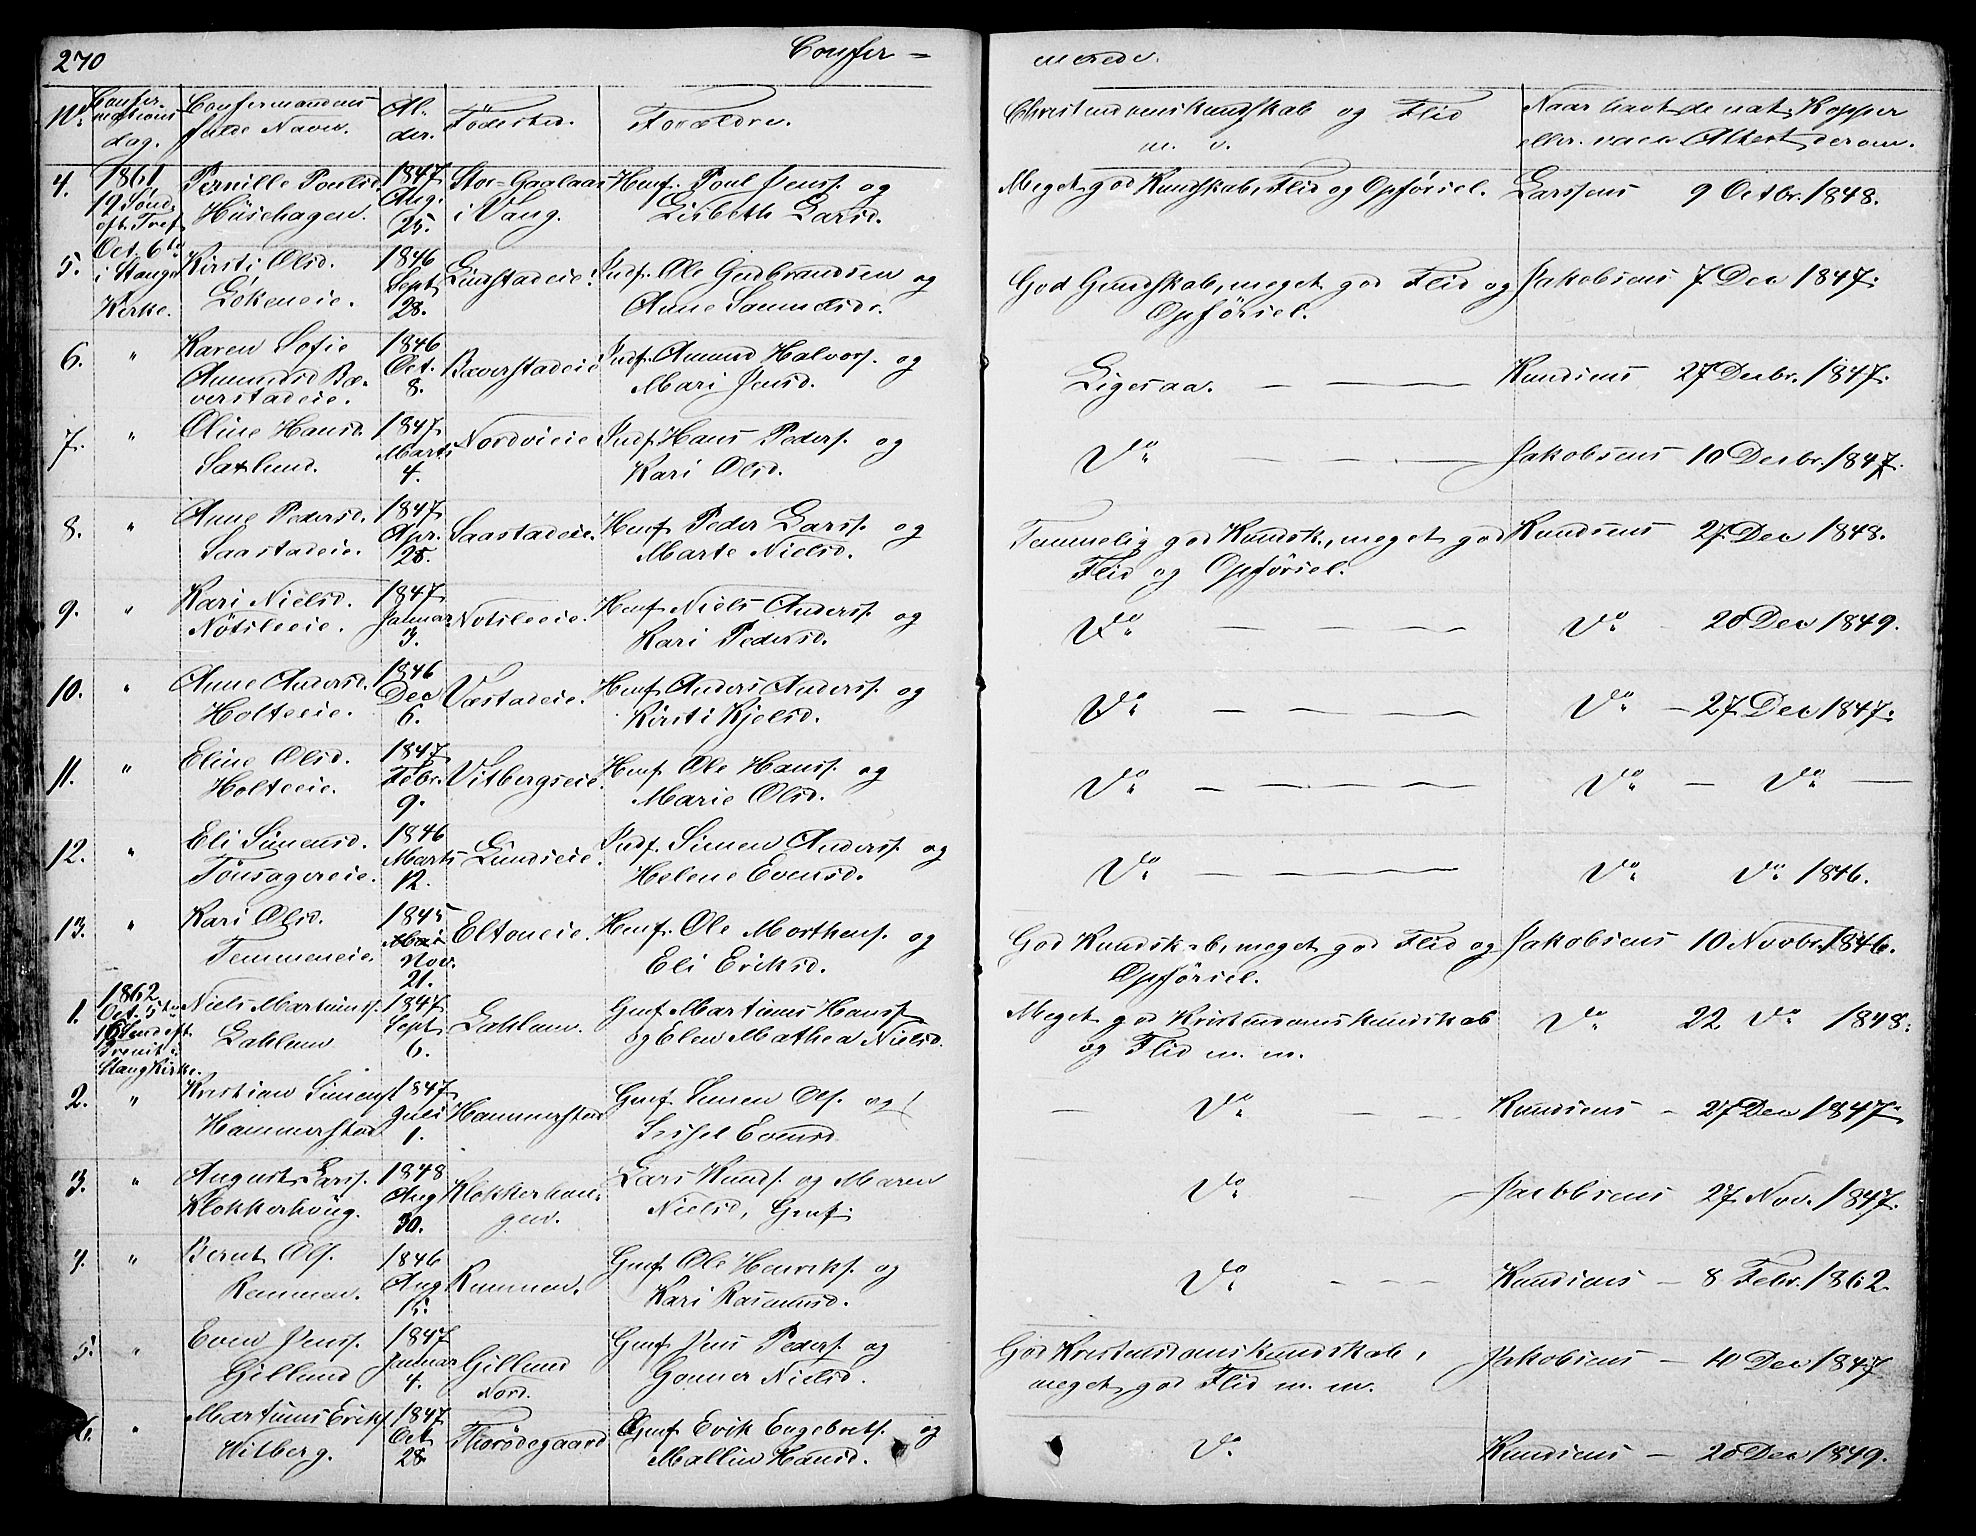 270 Confer = merede.
No. Confer- mations dag. Confermandens fulde Navn. Al- der. Fødested. Forældre. Christendomskundskab og Flid m. v. Naar havt de nat. Kopper eller vacc. Attest derom.
4. 1861 19 Sönd. eft. Tref. Pernille Poulsd. Hüsehagen. 1847 Aug. 25. Stor-Gaalaas i Vang. Huusf. Poul Jensf. og Lisbeth Larsd. Meget god Kundskab, Flid og Opførsel. Larssens 9 Octbr. 1848.
5. Oct. 6te i Stange Kirke. Kirsti Olsd. Lokeneie. 1846 Sept 28. Lindstadeie. Indf. Ole Gudbrandsen og Anne Samuelsd. God Kundskab, meget god Flid og Opførsel. Jakobsens 7 Dec 1847.
6. " Karen Sofie Amundsd Bæ- verstadeie. 1846 Oct. 8. Bæverstadeie Indf. Amund Halvors. og Mari Jensd. Ligesaa. — — — Knudsens 27 Decbr. 1847.
7. " Oline Hansd. Saxlund. 1847 Marts 4. Nordvieie Indf. Hans Pedersf. og Kari Olsd. Do. — — — Jakobsens 10 Decbr. 1847.
8. " Anne Pedersd. Saastadeie. 1847 Apr. 25. Saastadeie. Huusf. Peder Larsf. og Marte Nielsd. Temmelig god Kundsk., meget god Flid og Opførsel. Knudsens 27 Dec 1848.
9. " Kari Nielsd. Nötsleeie. 1847 Januar 3. Nötsleeie. Huusf. Niels Andersf. og Kari Pedersd. Do. — — — — Do. 20 Dec 1849.
10. " Anne Andersd. Holteeie. 1846 Dec 6. Væstadeie. Huusf. Anders Andersf. og Kirsti Kjelsd. Do. — — — — Do. — 27 Dec 1847.
11. " Eline Olsd. Holteeie. 1847 Febr. 9. Vitbergseie. Huusf. Ole Hansf. og Marie Olsd. Do. — — — — Do. — Do. —
12. " Eli Simensd. Tönsagereie. 1846 Marts 12. Lundseie. Indf. Simen Andersf. og Helene Evensd. Do. — — — — Do. Do. 1846.
13. " Kari Olsd. Femmeneie. 1845 Mai Nov. 21. Eltoneie. Huusf. Ole Morthensf. og Eli Eriksd. God Kundskab, meget god Flid og Opførsel. Jakobsens 10 Novbr. 1846.
1. 1862 Oct. 5te 16 Sönd eft. Trenit. i Stang Kirke. Niels Martinusf. Lahlum 1847 Sept 6. Lahlum. Gmf. Martinus Hansf. og Elen Mathea Nielsd. Meget god Kristendomskundskab og Flid m. m. Do. 22 Do. 1848.
2. " Kristian Simensf. Hammerstad 1847 Juli 1. Hammerstad Gmf. Simen Olsf. og Sissel Evensd. — Do. — — Knudsens — 27 Dec 1847.
3. " August Larsf. Klokkerhöug. 1848 Aug 30. Klokkerhau- gen. Lars Knudsf. og Maren Nielsd, Gmf. Do. — — Jacobsens 27 Nov. 1847.
4. " Bernt Olsf. Rommen. 1846 Aug 15. Rommen. Gmf. Ole Henriksf. og Kari Rasmusd. Do. — — — Knudsens — 8 Febr. 1862.
5. " Even Jensf. Gillund 1847 Januar 4. Gillund Nord. Gmf. Jens Pedersf. og Gonner Nielsd. God Kristendomskundskab, meget god Flid m. m. Jakobsens — 10 Dec 1847
6. " Martinus Eriksf. Vitberg. 1847 Oct 28. Thorödegaard Gmf. Erik Engebretsf. og Mallin Hansd. Do. Knudsens — 20 Dec 1849.